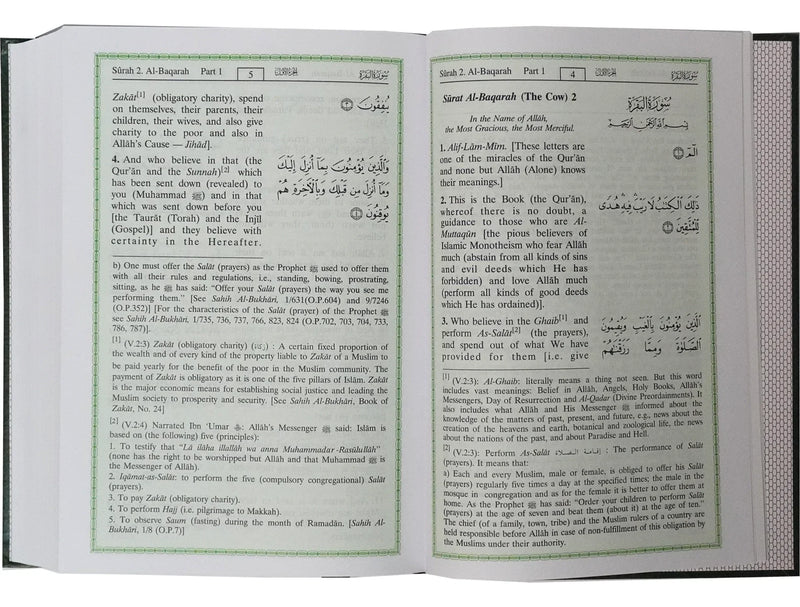 Sûrah 2. Al-Baqarah Part 1 4 الجزء الأول سورة البقرة
Sûrat Al-Baqarah (The Cow) 2
In the Name of Allâh,
the Most Gracious, the Most Merciful.
1. Alif-Lâm-Mîm. [These letters are
one of the miracles of the Qur'ân
and none but Allâh (Alone) knows
their meanings.]
2. This is the Book (the Qur'ân),
whereof there is no doubt, a
guidance to those who are Al-
Muttaqûn [the pious believers of
Islamic Monotheism who fear Allâh
much (abstain from all kinds of sins
and evil deeds which He has
forbidden) and love Allâh much
(perform all kinds of good deeds
which He has ordained)].
3. Who believe in the Ghaib[1] and
perform As-Salât[2] (the prayers),
and spend out of what We have
provided for them [i.e. give
سورة البقرة
بِسْمِ اللَّهِ الرَّحْمَٰنِ الرَّحِيمِ
الٓمٓ ١
ذَٰلِكَ الْكِتَٰبُ لَا رَيْبَ ۛ فِيهِ ۛ هُدًى
لِّلْمُتَّقِينَ ٢
الَّذِينَ يُؤْمِنُونَ بِالْغَيْبِ وَيُقِيمُونَ
الصَّلَوٰةَ وَمِمَّا رَزَقْنَٰهُمْ
[1] (V.2:3): Al-Ghaib: literally means a thing not seen. But this word
includes vast meanings: Belief in Allâh, Angels, Holy Books, Allâh's
Messengers, Day of Resurrection and Al-Qadar (Divine Preordainments). It
also includes what Allâh and His Messenger ﷺ informed about the
knowledge of the matters of past, present, and future, e.g., news about the
creation of the heavens and earth, botanical and zoological life, the news
about the nations of the past, and about Paradise and Hell.
[2] (V.2:3): Perform As-Salât إقامة الصلاة : The performance of Salât
(prayers). It means that:
a) Each and every Muslim, male or female, is obliged to offer his Salât
(prayers) regularly five times a day at the specified times; the male in the
mosque in congregation and as for the female it is better to offer them at
home. As the Prophet ﷺ has said: "Order your children to perform Salât
(prayers) at the age of seven and beat them (about it) at the age of ten."
The chief (of a family, town, tribe) and the Muslim rulers of a country are
held responsible before Allâh in case of non-fulfillment of this obligation by
the Muslims under their authority.
Sûrah 2. Al-Baqarah Part 1 5 الجزء الأول سورة البقرة
Zakât[1] (obligatory charity), spend
on themselves, their parents, their
children, their wives, and also give
charity to the poor and also in
Allâh's Cause — Jihâd].
4. And who believe in that (the
Qur'ân and the Sunnah)[2] which
has been sent down (revealed) to
you (Muhammad ﷺ) and in that
which was sent down before you
[the Taurât (Torah) and the Injîl
(Gospel)] and they believe with
certainty in the Hereafter.
يُنفِقُونَ ٣
وَالَّذِينَ يُؤْمِنُونَ بِمَا أُنزِلَ إِلَيْكَ
وَمَا أُنزِلَ مِن قَبْلِكَ وَبِالْأَخِرَةِ هُمْ
يُوقِنُونَ ٤
b) One must offer the Salât (prayers) as the Prophet ﷺ used to offer them
with all their rules and regulations, i.e., standing, bowing, prostrating,
sitting, as he ﷺ has said: "Offer your Salât (prayers) the way you see me
performing them." [See Sahih Al-Bukhâri, 1/631(O.P.604) and 9/7246
(O.P.352)] [For the characteristics of the Salât (prayer) of the Prophet ﷺ
see Sahih Al-Bukhâri, 1/735, 736, 737, 766, 823, 824 (O.P.702, 703, 704, 733,
786, 787)].
[1] (V.2:3) Zakât (obligatory charity) (زكاة) : A certain fixed proportion of
the wealth and of every kind of the property liable to Zakât of a Muslim to
be paid yearly for the benefit of the poor in the Muslim community. The
payment of Zakât is obligatory as it is one of the five pillars of Islâm. Zakât
is the major economic means for establishing social justice and leading the
Muslim society to prosperity and security. [See Sahih Al-Bukhâri, Book of
Zakât, No. 24]
[2] (V.2:4) Narrated Ibn 'Umar: Allâh's Messenger ﷺ said: Islâm is
based on (the following) five (principles):
1. To testify that "Lâ ilâha illallâh wa anna Muhammadar -Rasûlullâh"
(none has the right to be worshipped but Allâh and that Muhammad ﷺ is
the Messenger of Allâh).
2. Iqâmat-as-Salât: to perform the five (compulsory congregational) Salât
(prayers).
3. To pay Zakât (obligatory charity).
4. To perform Hajj (i.e. pilgrimage to Makkah).
5. To observe Saum (fasting) during the month of Ramadân. [Sahih Al-
Bukhâri, 1/8 (O.P.7)]